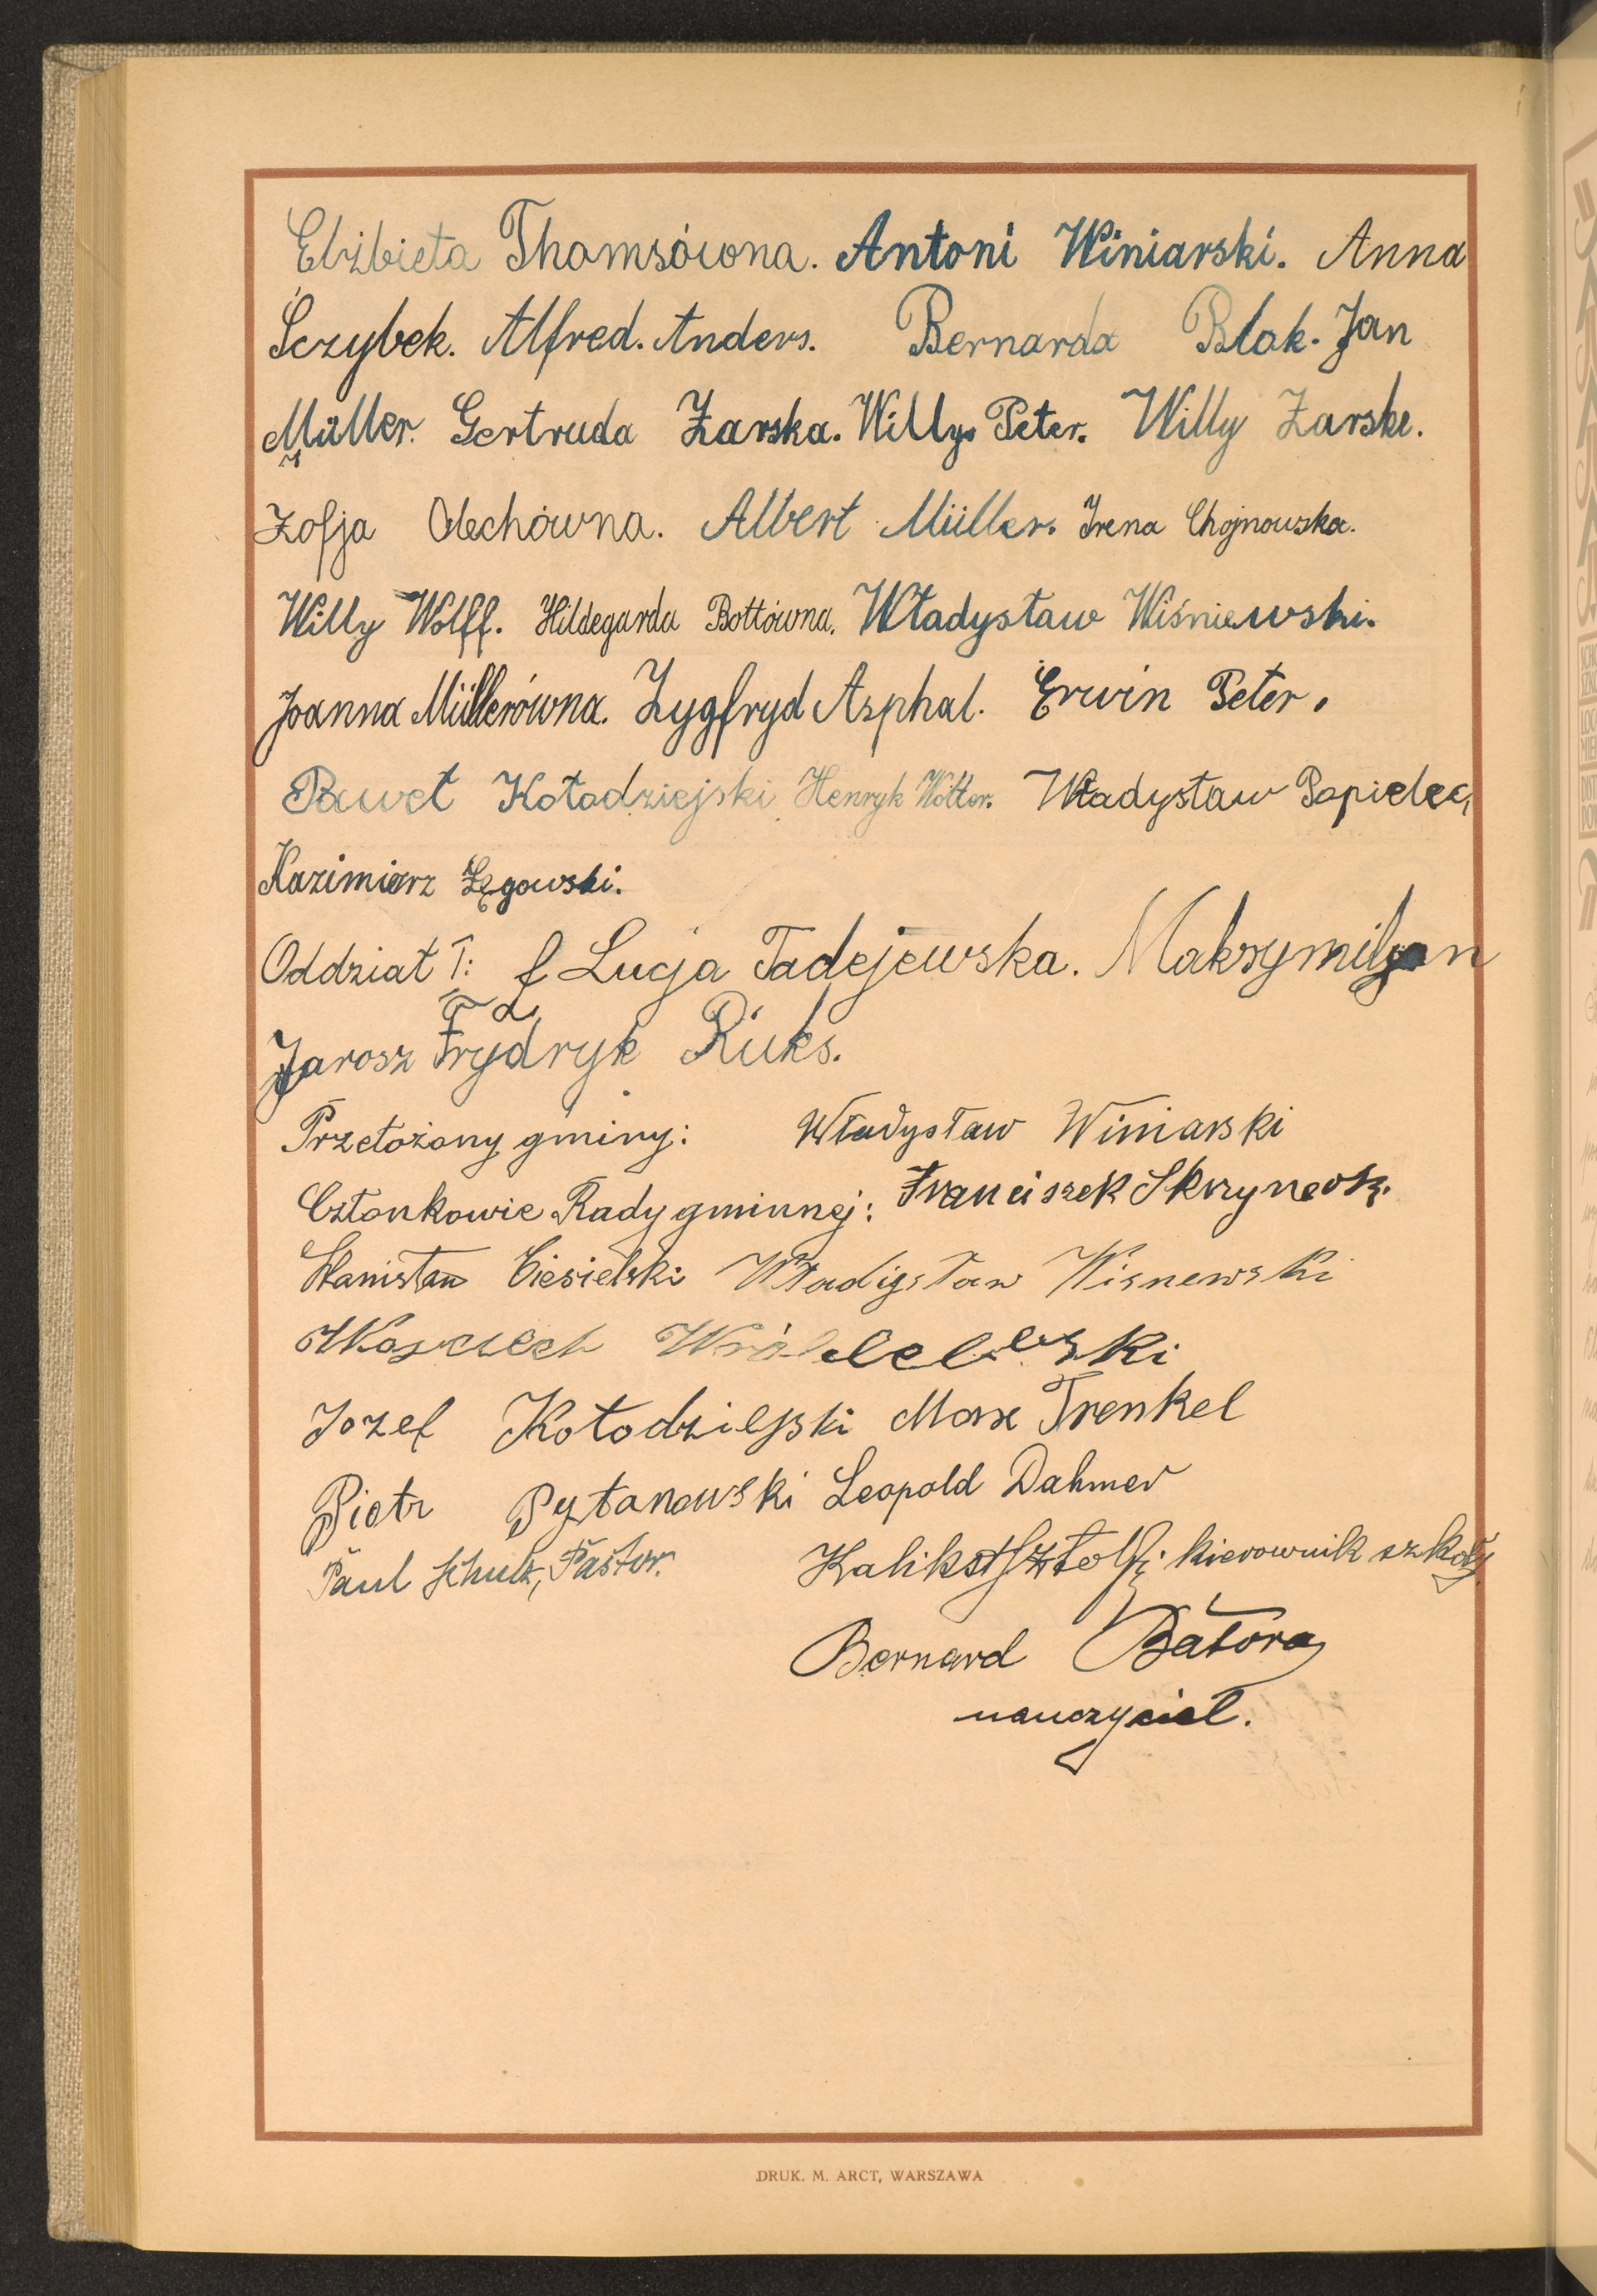 Elżbieta Thomsówna. Antoni Winiarski. Anna
Sczybek. Alfred. Anders. Bernarda Blak. Jan
Müller. Gertruda Żarska. Willy Peter. Willy Żarske.
Zofja Olechówna. Albert Müller. Irena Chojnowska.
Willy Wolff. Hildegarda Bottówna. Władysław Wiśniewski.
Joanna Müllerówna. Zygfryd Asphal. Erwin Peter.
Paweł Kołodziejski Henryk Wolter. Władysław Popielec,
Kazimierz Łęgowski.
Oddział I: Łucja Tadejewska. Maksymiljan
Jarosz Frydryk Riuks.
Przełożony gminy: Władysław Winiarski
Członkowie Rady gminnej: Franciszek Skrzynecki.
Stanisław Ciesielski Władigsław Wisnewski
Wojciech Wróblelewski
Jozef Kołodziejski Max Trenkel
Piotr Pytanowski Leopold Dahmer
Paul Schulz, Pastor. Kalikst kierownik szkoły
Bernard Batora
nauczyciel.
DRUK. M. ARCT, WARSZAWA